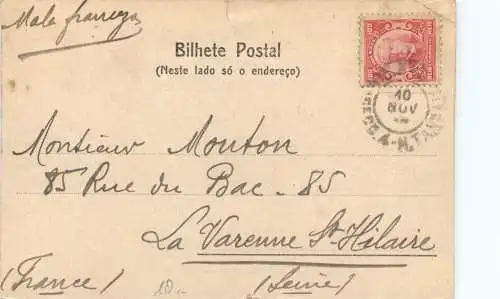 Mala franceza
Bilhete Postal
(Neste lado só o endereço)
10
NOV
Monsieur Monton
85 Rue du Bac - 85
La Varenne St Hilaire
(France)
10-
(Seine)